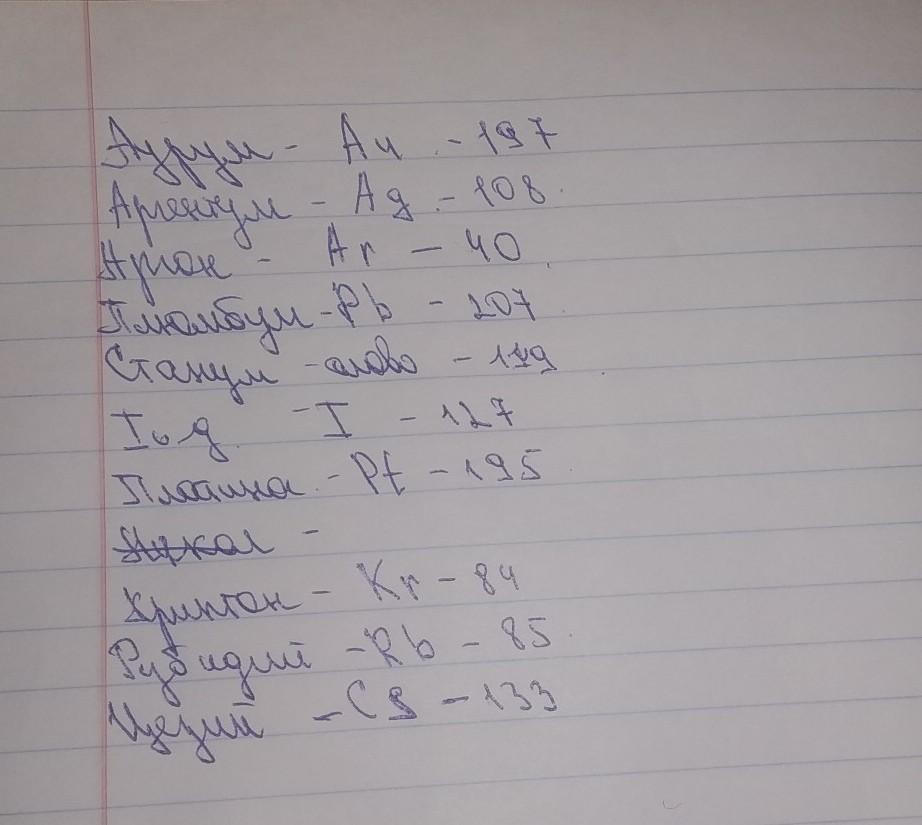 Аурум - Au - 197
Аргентум - Ag - 108
Аргон - Ar - 40
Плюмбум - Pb - 207
Станум - олово - 119
Iод - I - 127
Платина - Pt - 195
-
Криптон - Kr - 84
Рубидий - Rb - 85
Цезий - Cs - 133